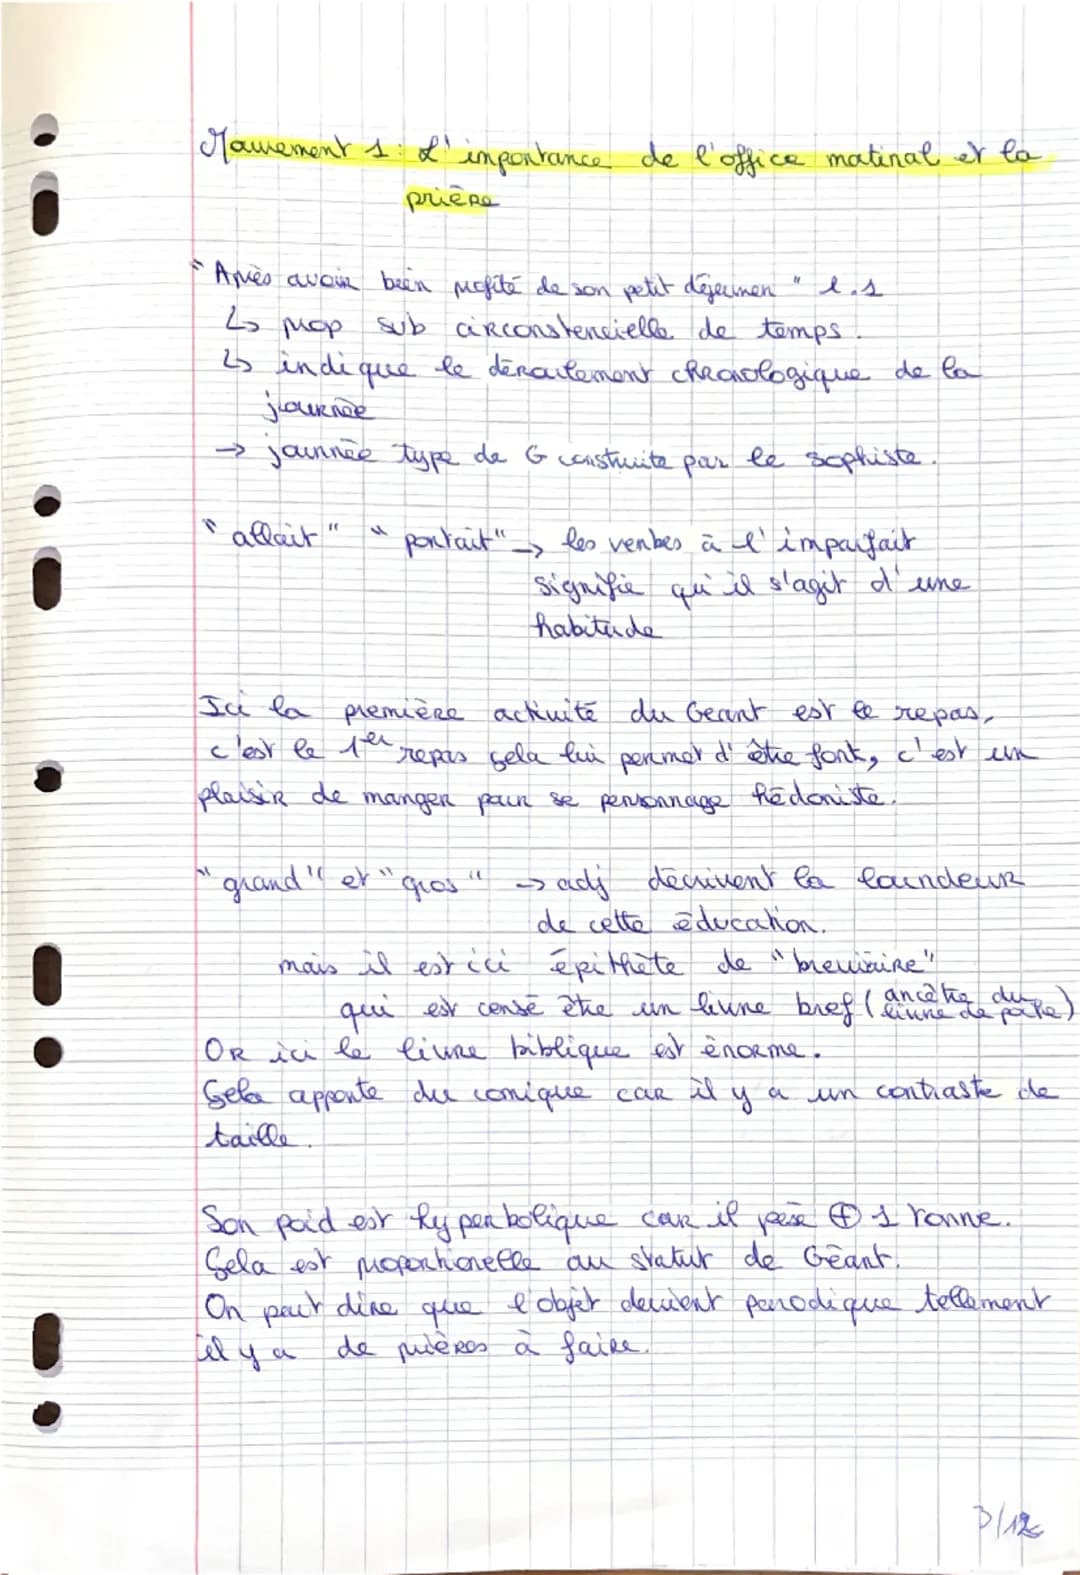 Mouvement 1 : L'importance de l'office matinal et la
prière
"Après avoir bien profité de son petit déjeuner" l.1
↳ prop sub circonstencielle de temps.
↳ indique le déroulement chronologique de la
journée
→ journée type de G construite par le sophiste.
"allait" "portait" → les verbes à l'imparfait
signifie qu'il s'agit d'une
habitude
Ici la première activité du Geant est le repas,
c'est le 1er repas cela lui permet d'être fort, c'est un
plaisir de manger pour se personnage hédoniste.
"grand" et "gros" → adj décrivent la lourdeur
de cette éducation.
mais il est ici épithète de "breviaire"
qui est censé être un livre bref (ancêtre du
livre de poche)
OR ici le livre biblique est énorme.
Cela apporte du comique car il y a un contraste de
taille.
Son poid est hyperbolique car il pèse ⊕ 1 tonne.
Cela est proportionelle au statut de Géant.
On peut dire que l'objet devient parodique tellement
il y a de prières à faire.
3/12